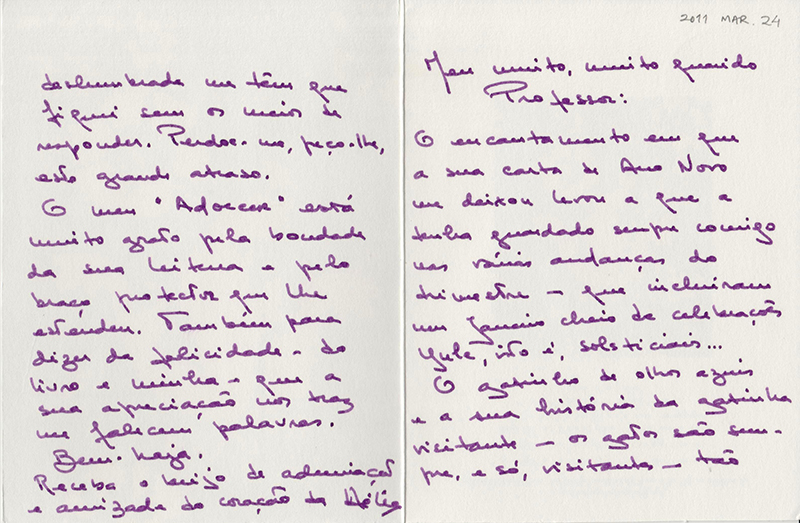 2011 MAR. 24
Meu muito, muito querido
Professor:
O encantamento em que
a sua carta de Ano Novo
me deixou levou a que a
tenha guardado sempre comigo
nas várias andanças do
trimestre — que incluíram
um Janeiro cheio de celebrações
Yule, isto é, solsticiais...
O gatinho de olhos azuis
e a sua história da gatinha
visitante — os gatos são sem-
pre, e só, visitantes — tão
deslumbrada me têm que
fiquei sem os meios de
responder. Perdoe-me, peço-lhe,
este grande atraso.
O meu "Adoecer" está
muito grato pela bondade
da sua leitura e pelo
braço protector que lhe
estendeu. Também para
dizer da felicidade - do
livro e minha - que a
sua apreciação nos traz
me falecem palavras.
Bem-haja.
Receba o beijo de admiração
e amizade do coração da Hélia